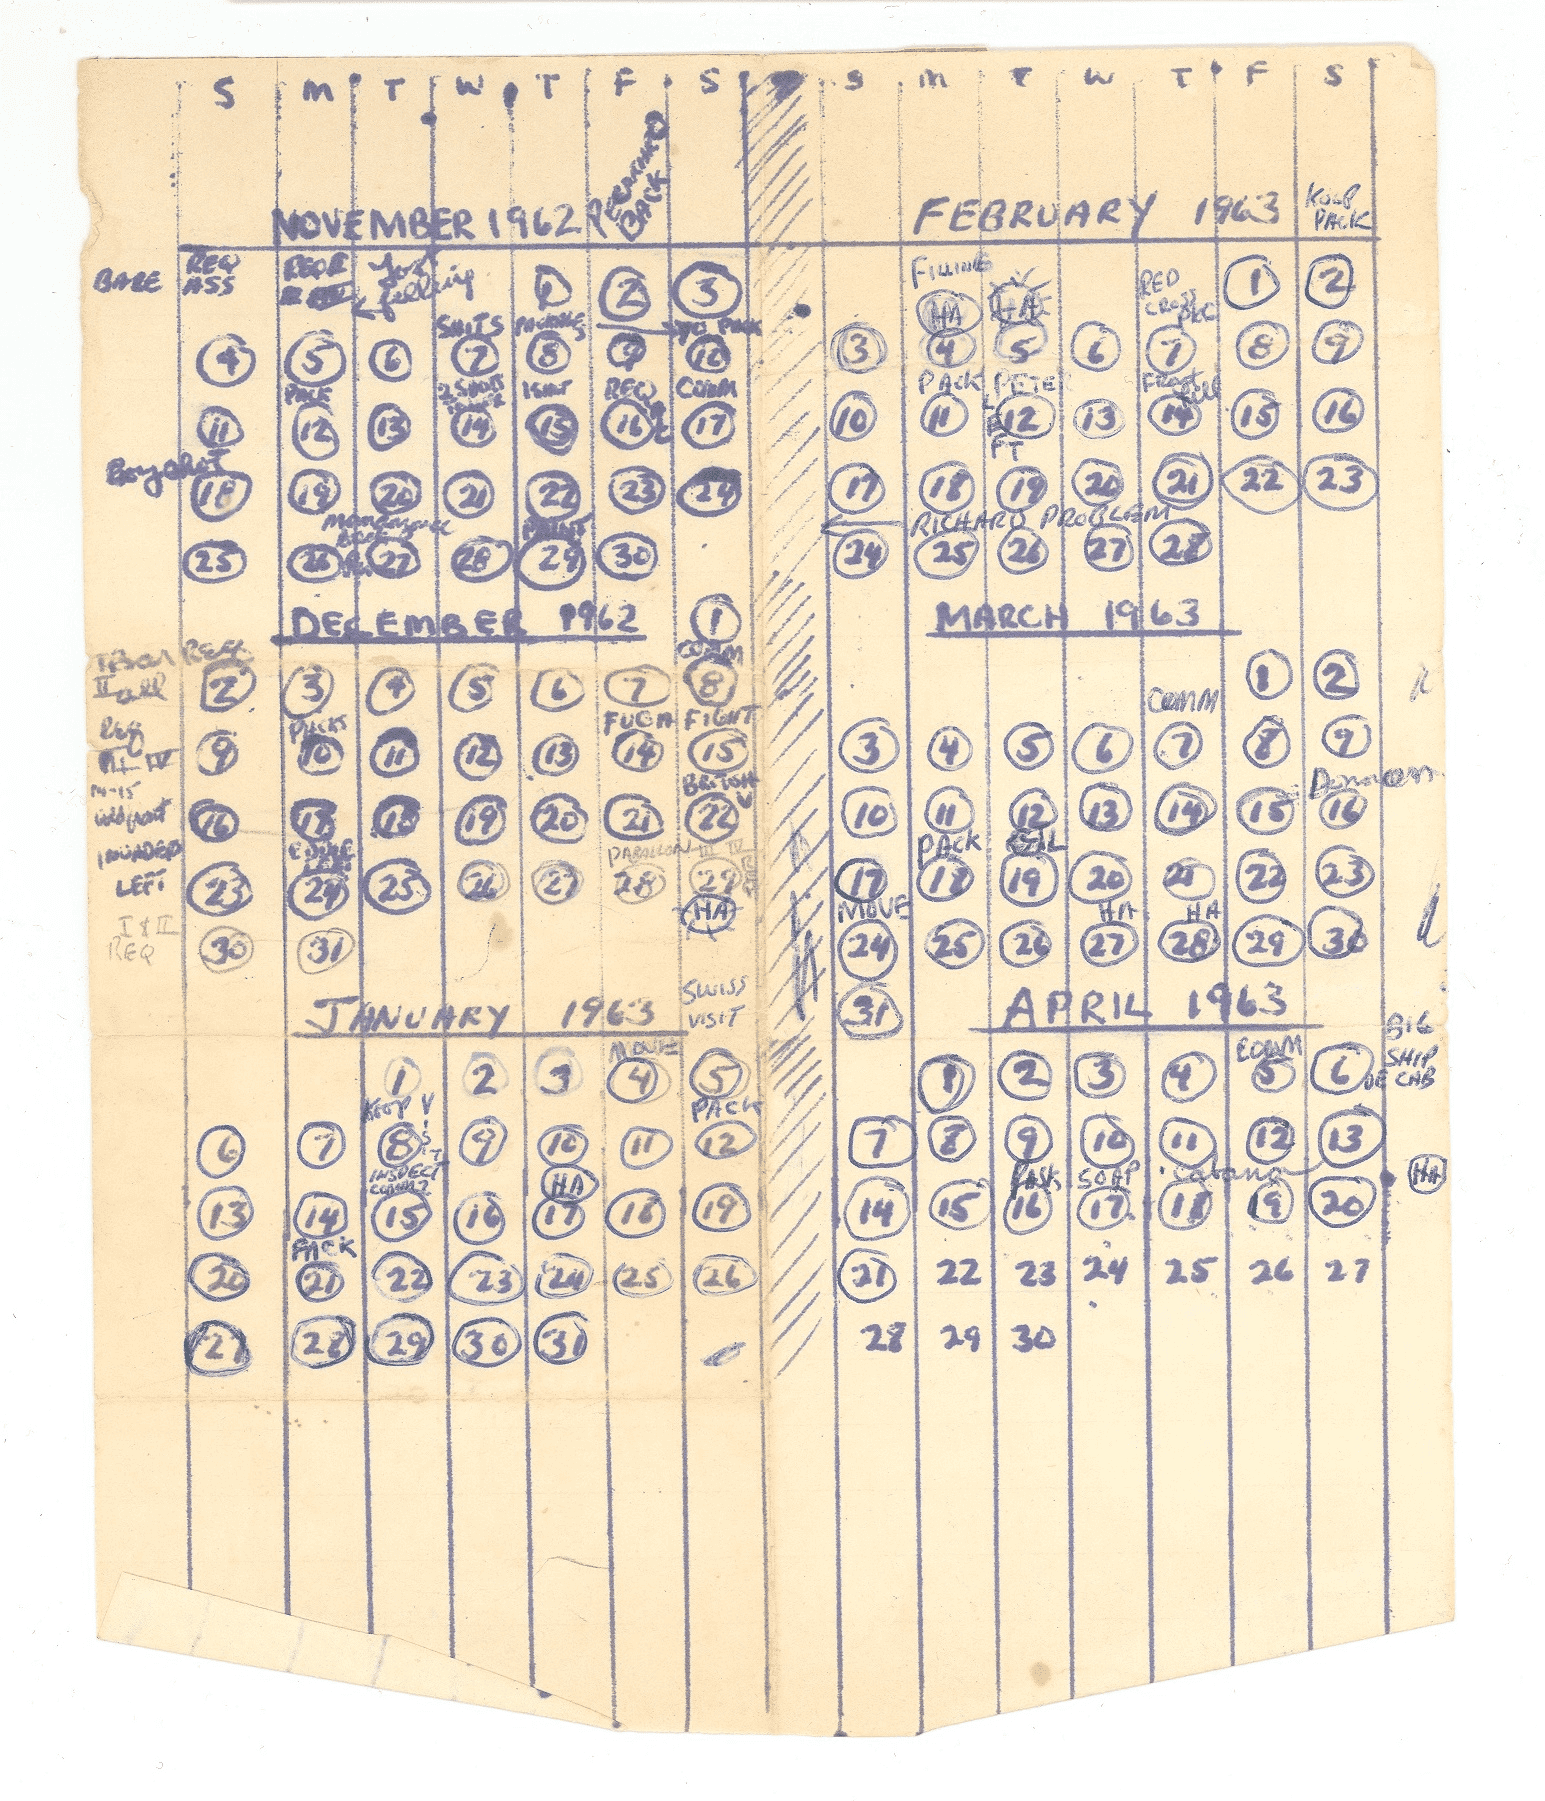 S M T W T F S
NOVEMBER 1962
BACK
REQ
ASS
1 2 3
SHITS
4 5 6 7 8 9 10
PACK
REQ
COMM
11 12 13 14 15 16 17
Boycot
18 19 20 21 22 23 24
25 26 27 28 29 30
DECEMBER 1962
1
COMM
II all
2 3 4 5 6 7 8
PACKS
FUGA FIGHT
9 10 11 12 13 14 15
III IV
14-15
16 17 18 19 20 21 22
INVADED
LEFT
III IV
23 24 25 26 27 28 29
HA
I & II
REQ
30 31
JANUARY 1963
SWISS
VISIT
MOVE
1 2 3 4 5
PACK
6 7 8 9 10 11 12
INSPECT
COMM?
HA
13 14 15 16 17 18 19
PACK
20 21 22 23 24 25 26
27 28 29 30 31
S M T W T F S
FEBRUARY 1963
PACK
FILLING
HA HA
RED
CROSS
1 2
3 4 5 6 7 8 9
PACK PETER
10 11 12 13 14 15 16
LEFT
17 18 19 20 21 22 23
RICHARD PROBLEM
24 25 26 27 28
MARCH 1963
COMM
1 2
3 4 5 6 7 8 9
Donovan
10 11 12 13 14 15 16
PACK
17 18 19 20 21 22 23
MOVE
HA HA
24 25 26 27 28 29 30
31
APRIL 1963
BIG
SHIP
DE CAB
COMM
1 2 3 4 5 6
7 8 9 10 11 12 13
SOAP
Cabana
HA
14 15 16 17 18 19 20
21 22 23 24 25 26 27
28 29 30